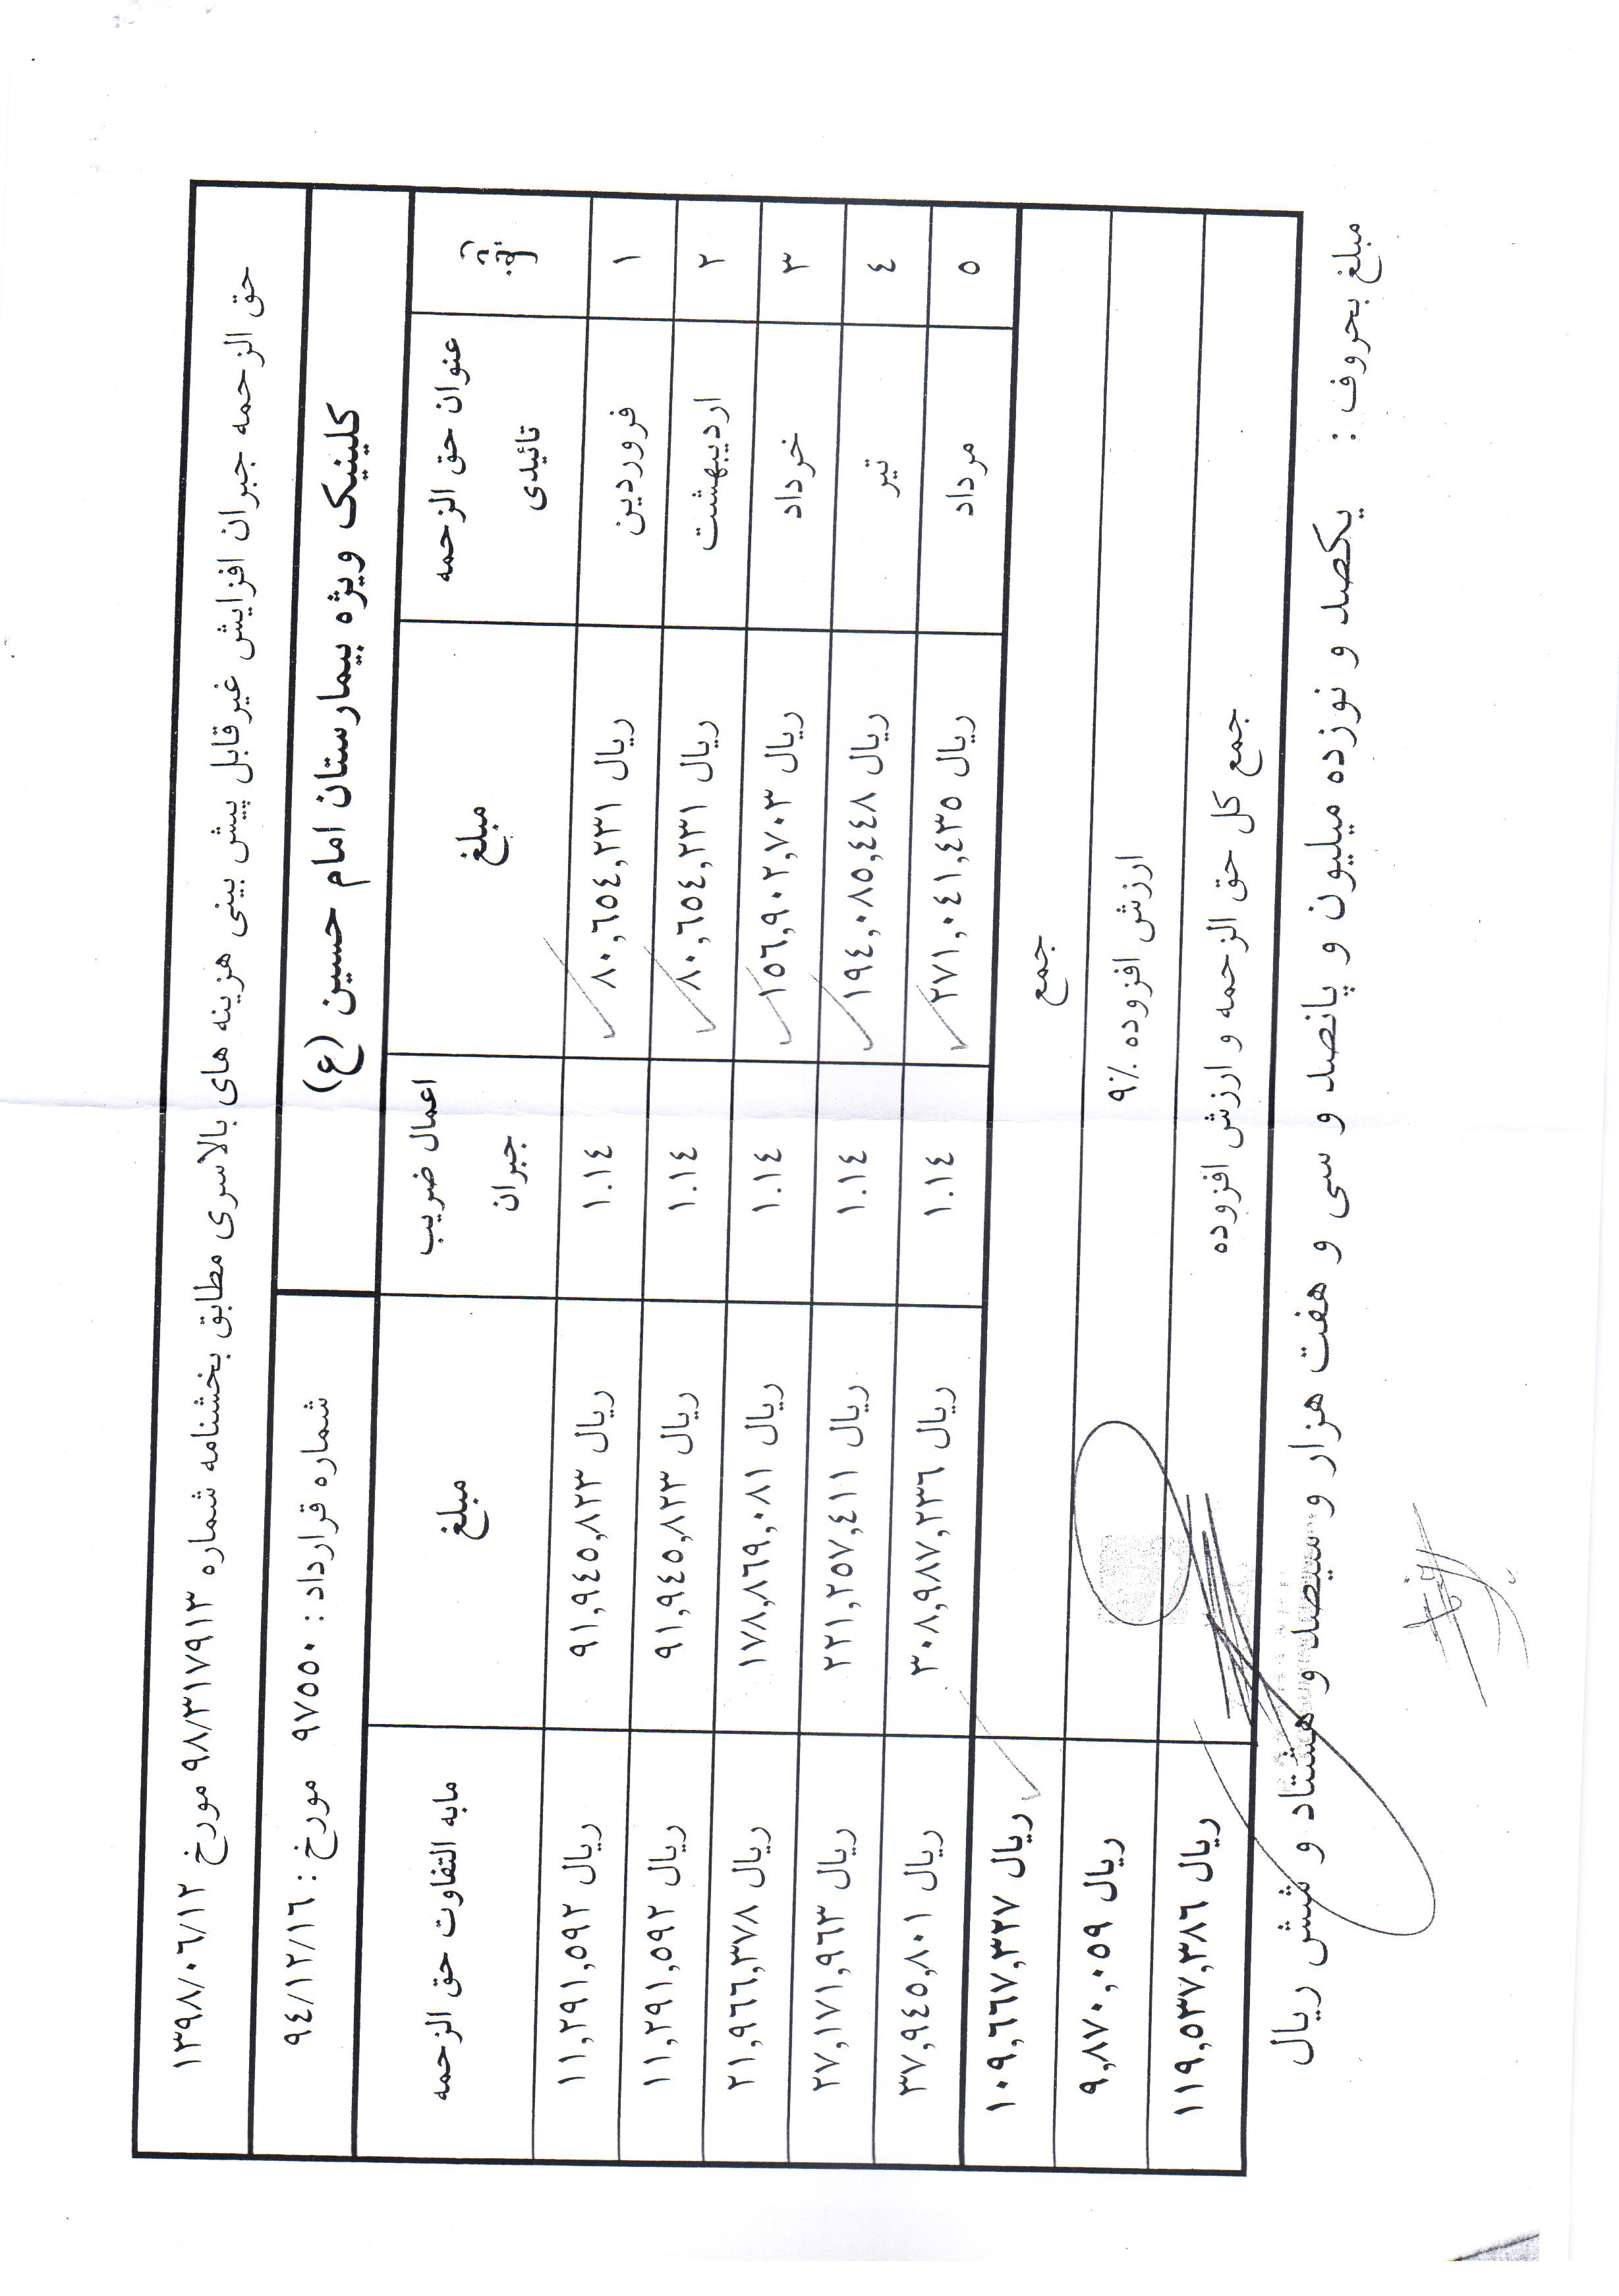 حق الزحمه جبران افزایش غیرقابل پیش بینی هزینه های بالاسری مطابق بخشنامه شماره ۹۸/۳۱۷۹۱۳ مورخ ۱۳۹۸/۰۶/۱۲
کلینیک ویژه بیمارستان امام حسین (ع) شماره قرارداد : ۹۷۵۵۰ مورخ : ۹٤/۱۲/۱٦
ردیف عنوان حق الزحمه تائیدی مبلغ اعمال ضریب جبران مبلغ مابه التفاوت حق الزحمه
۱ فروردین ۸۰,٦٥٤,۲۳۱ ریال ۱.۱٤ ۹۱,۹٤٥,۸۲۳ ریال ۱۱,۲۹۱,٥۹۲ ریال
۲ اردیبهشت ۸۰,٦٥٤,۲۳۱ ریال ۱.۱٤ ۹۱,۹٤٥,۸۲۳ ریال ۱۱,۲۹۱,٥۹۲ ریال
۳ خرداد ۱٥٦,۹۰۲,۷۰۳ ریال ۱.۱٤ ۱۷۸,۸٦۹,۰۸۱ ریال ۲۱,۹٦٦,۳۷۸ ریال
٤ تیر ۱۹٤,۰۸٥,٤٤۸ ریال ۱.۱٤ ۲۲۱,۲٥۷,٤۱۱ ریال ۲۷,۱۷۱,۹٦۳ ریال
٥ مرداد ۲۷۱,۰٤۱,٤۳٥ ریال ۱.۱٤ ۳۰۸,۹۸۷,۲۳٦ ریال ۳۷,۹٤٥,۸۰۱ ریال
جمع ۱۰۹,٦٦۷,۳۲۷ ریال
ارزش افزوده ۹% ۹,۸۷۰,۰٥۹ ریال
جمع کل حق الزحمه و ارزش افزوده ۱۱۹,٥۳۷,۳۸٦ ریال
مبلغ بحروف : یکصد و نوزده میلیون و پانصد و سی و هفت هزار و سیصد و هشتاد و شش ریال